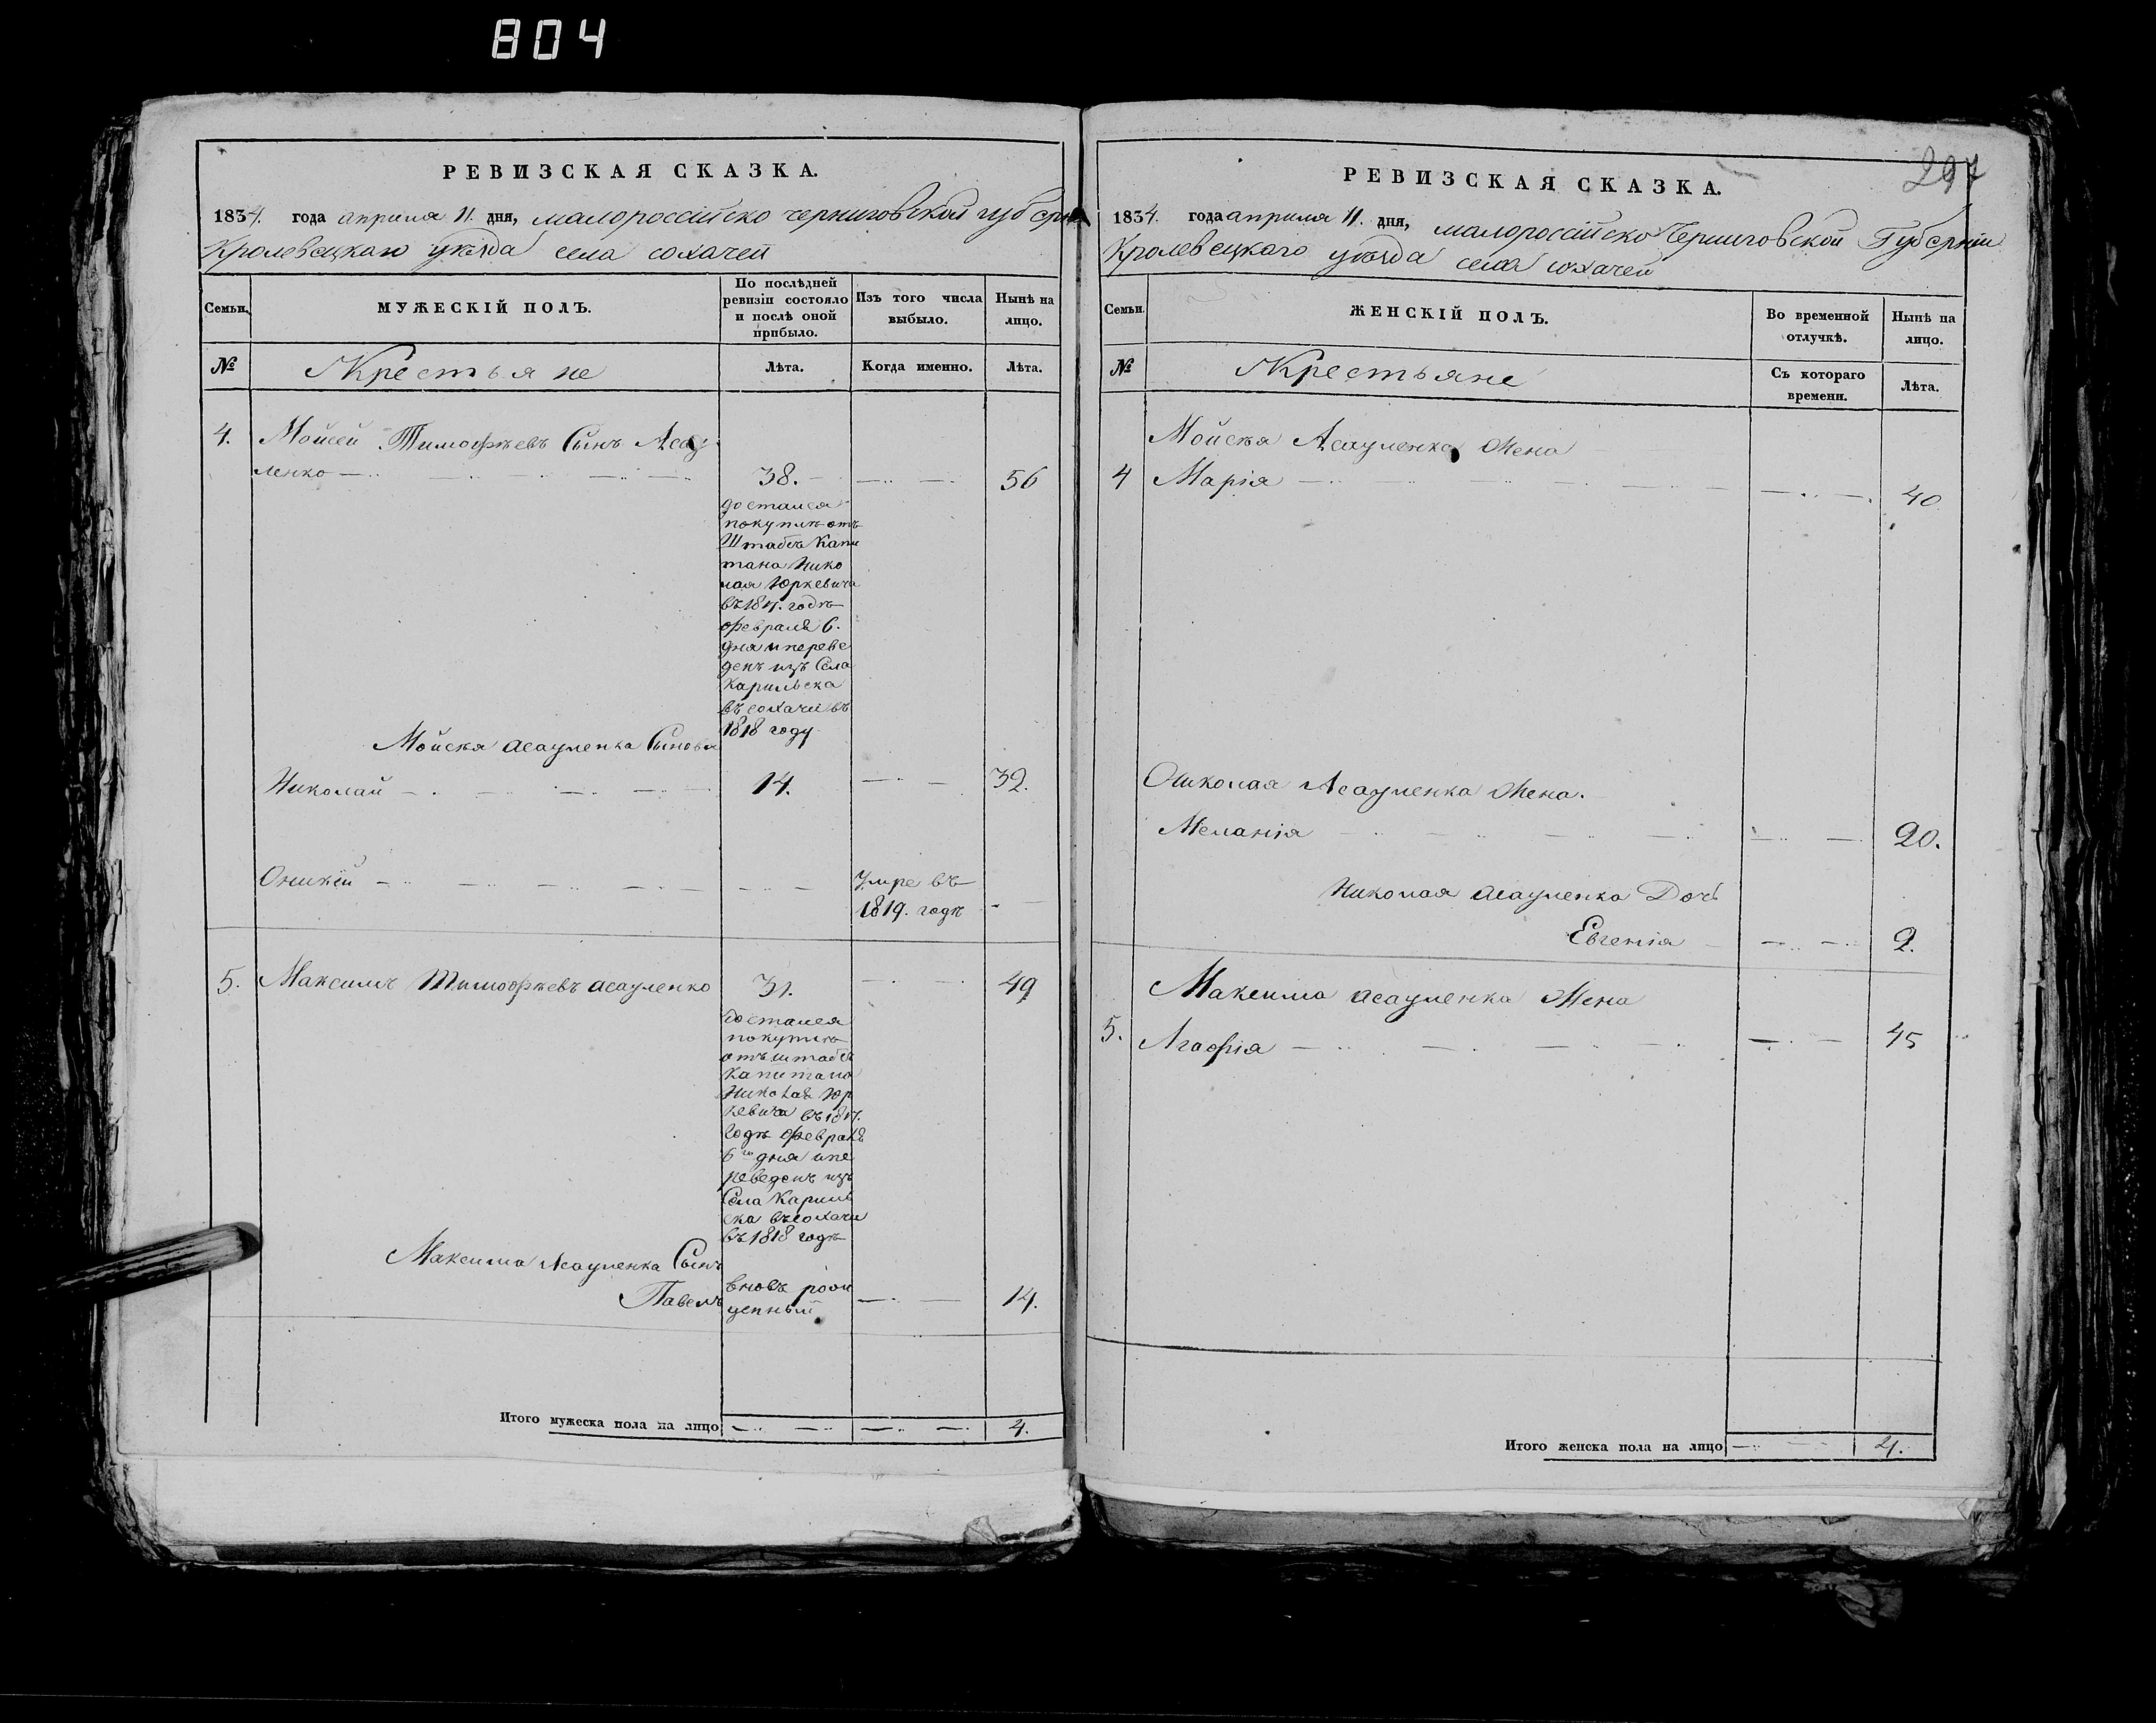 804
РЕВИЗСКАЯ СКАЗКА.
1834. года апреля 11. дня, малороссійско черниговской губерн
Кролевецкаго уѣзда села сохачей
Семьи.
МУЖЕСКІЙ ПОЛЪ.
По послѣдней ревизіи состояло и послѣ оной прибыло.
Изъ того числа выбыло.
Нынѣ на лицо.
№
Крестьяне
Лѣта.
Когда именно.
Лѣта.
4. Мойсей Тимофѣевъ Сынъ Асау
ленко 38. 56
достался
покупкѣ отъ
Штабсъ Капи
тана Нико
лая Юркевича
въ 1817. годѣ
февраля 6.
дня и переве
денъ изъ Села
Карильска
въ сохачи въ
1818 году
Мойсея Асауленка Сыновя
Николай 14. 32.
Оникій Умре въ
1819. годѣ
5. Максимъ Тимофѣевъ Асауленко 31. 49
достался
покупкѣ
отъ штабсъ
капитана
Николая Юр
кевича въ 1817.
годѣ февраля
6го дня и пе
реведенъ изъ
Села Кариль
ска въ сохачи
въ 1818 годѣ
Максима Асауленка Сынъ
Павелъ вновь рож
денный 14.
Итого мужеска пола на лицо 4.
297
РЕВИЗСКАЯ СКАЗКА.
1834. года апреля 11. дня, малороссійско Черниговской Губерніи
Кролевецкаго уѣзда села сохачей
Семьи.
ЖЕНСКІЙ ПОЛЪ.
Во временной отлучкѣ.
Нынѣ на лицо.
№
Крестьяне
Съ котораго времени.
Лѣта.
Мойсея Асауленка Жена
4 Марія 40
Николая Асауленка Жена.
Меланія 20.
Николая Асауленка Дочь
Евгенія 2.
Максима Асауленка Жена
5. Агафія 45
Итого женска пола на лицо 4.